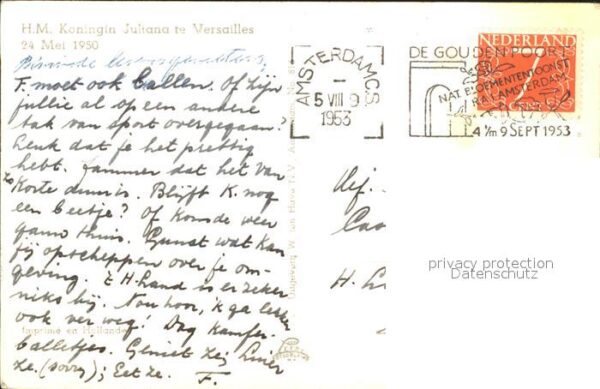 H.M. Koningin Juliana te Versailles
24 Mei 1950
F. moet ook ballen. Of zijn
jullie al op een andere
tak van sport overgegaan?
Denk dat je het prettig
hebt. Jammer dat het van
zo korte duur is. Blijft K. nog
een beetje? Of kom je weer
gauw thuis. Gunst wat kan
jij opscheppen over je om-
geving. E H.land is er zeker
niks bij. Nou hoor, 'k ga lekker
ook ver weg! Dag kamfer-
balletjes. Geniet ze,
ze. (sorry); Eet ze. F.
Imprimé en Hollande
Uitgeverij W. van
AMSTERDAM CS
5 VIII 9
1953
DE GOUDEN POORT
NAT. BLOEMENTENTOONST
RAI AMSTERDAM
4 t/m 9 SEPT 1953
NEDERLAND
7
H.
privacy protection
Datenschutz